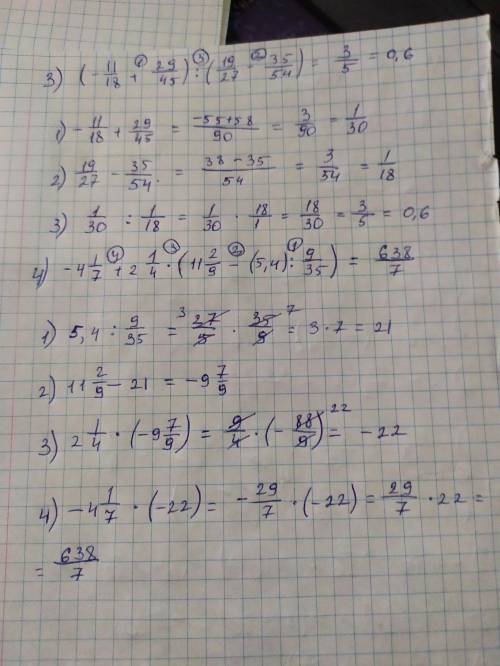 3) (-11/18 + 29/45) : (19/27 - 35/54) = 3/5 = 0,6
1) -11/18 + 29/45 = (-55+58)/90 = 3/90 = 1/30
2) 19/27 - 35/54 = (38-35)/54 = 3/54 = 1/18
3) 1/30 : 1/18 = 1/30 · 18/1 = 18/30 = 3/5 = 0,6
4) -4 1/7 + 2 1/4 · (11 2/9 - (5,4) : 9/35) = 638/7
1) 5,4 : 9/35 = 27/5 · 35/9 = 3 · 7 = 21
2) 11 2/9 - 21 = -9 7/9
3) 2 1/4 · (-9 7/9) = 9/4 · (-88/9) = -22
4) -4 1/7 · (-22) = -29/7 · (-22) = 29/7 · 22 =
= 638/7